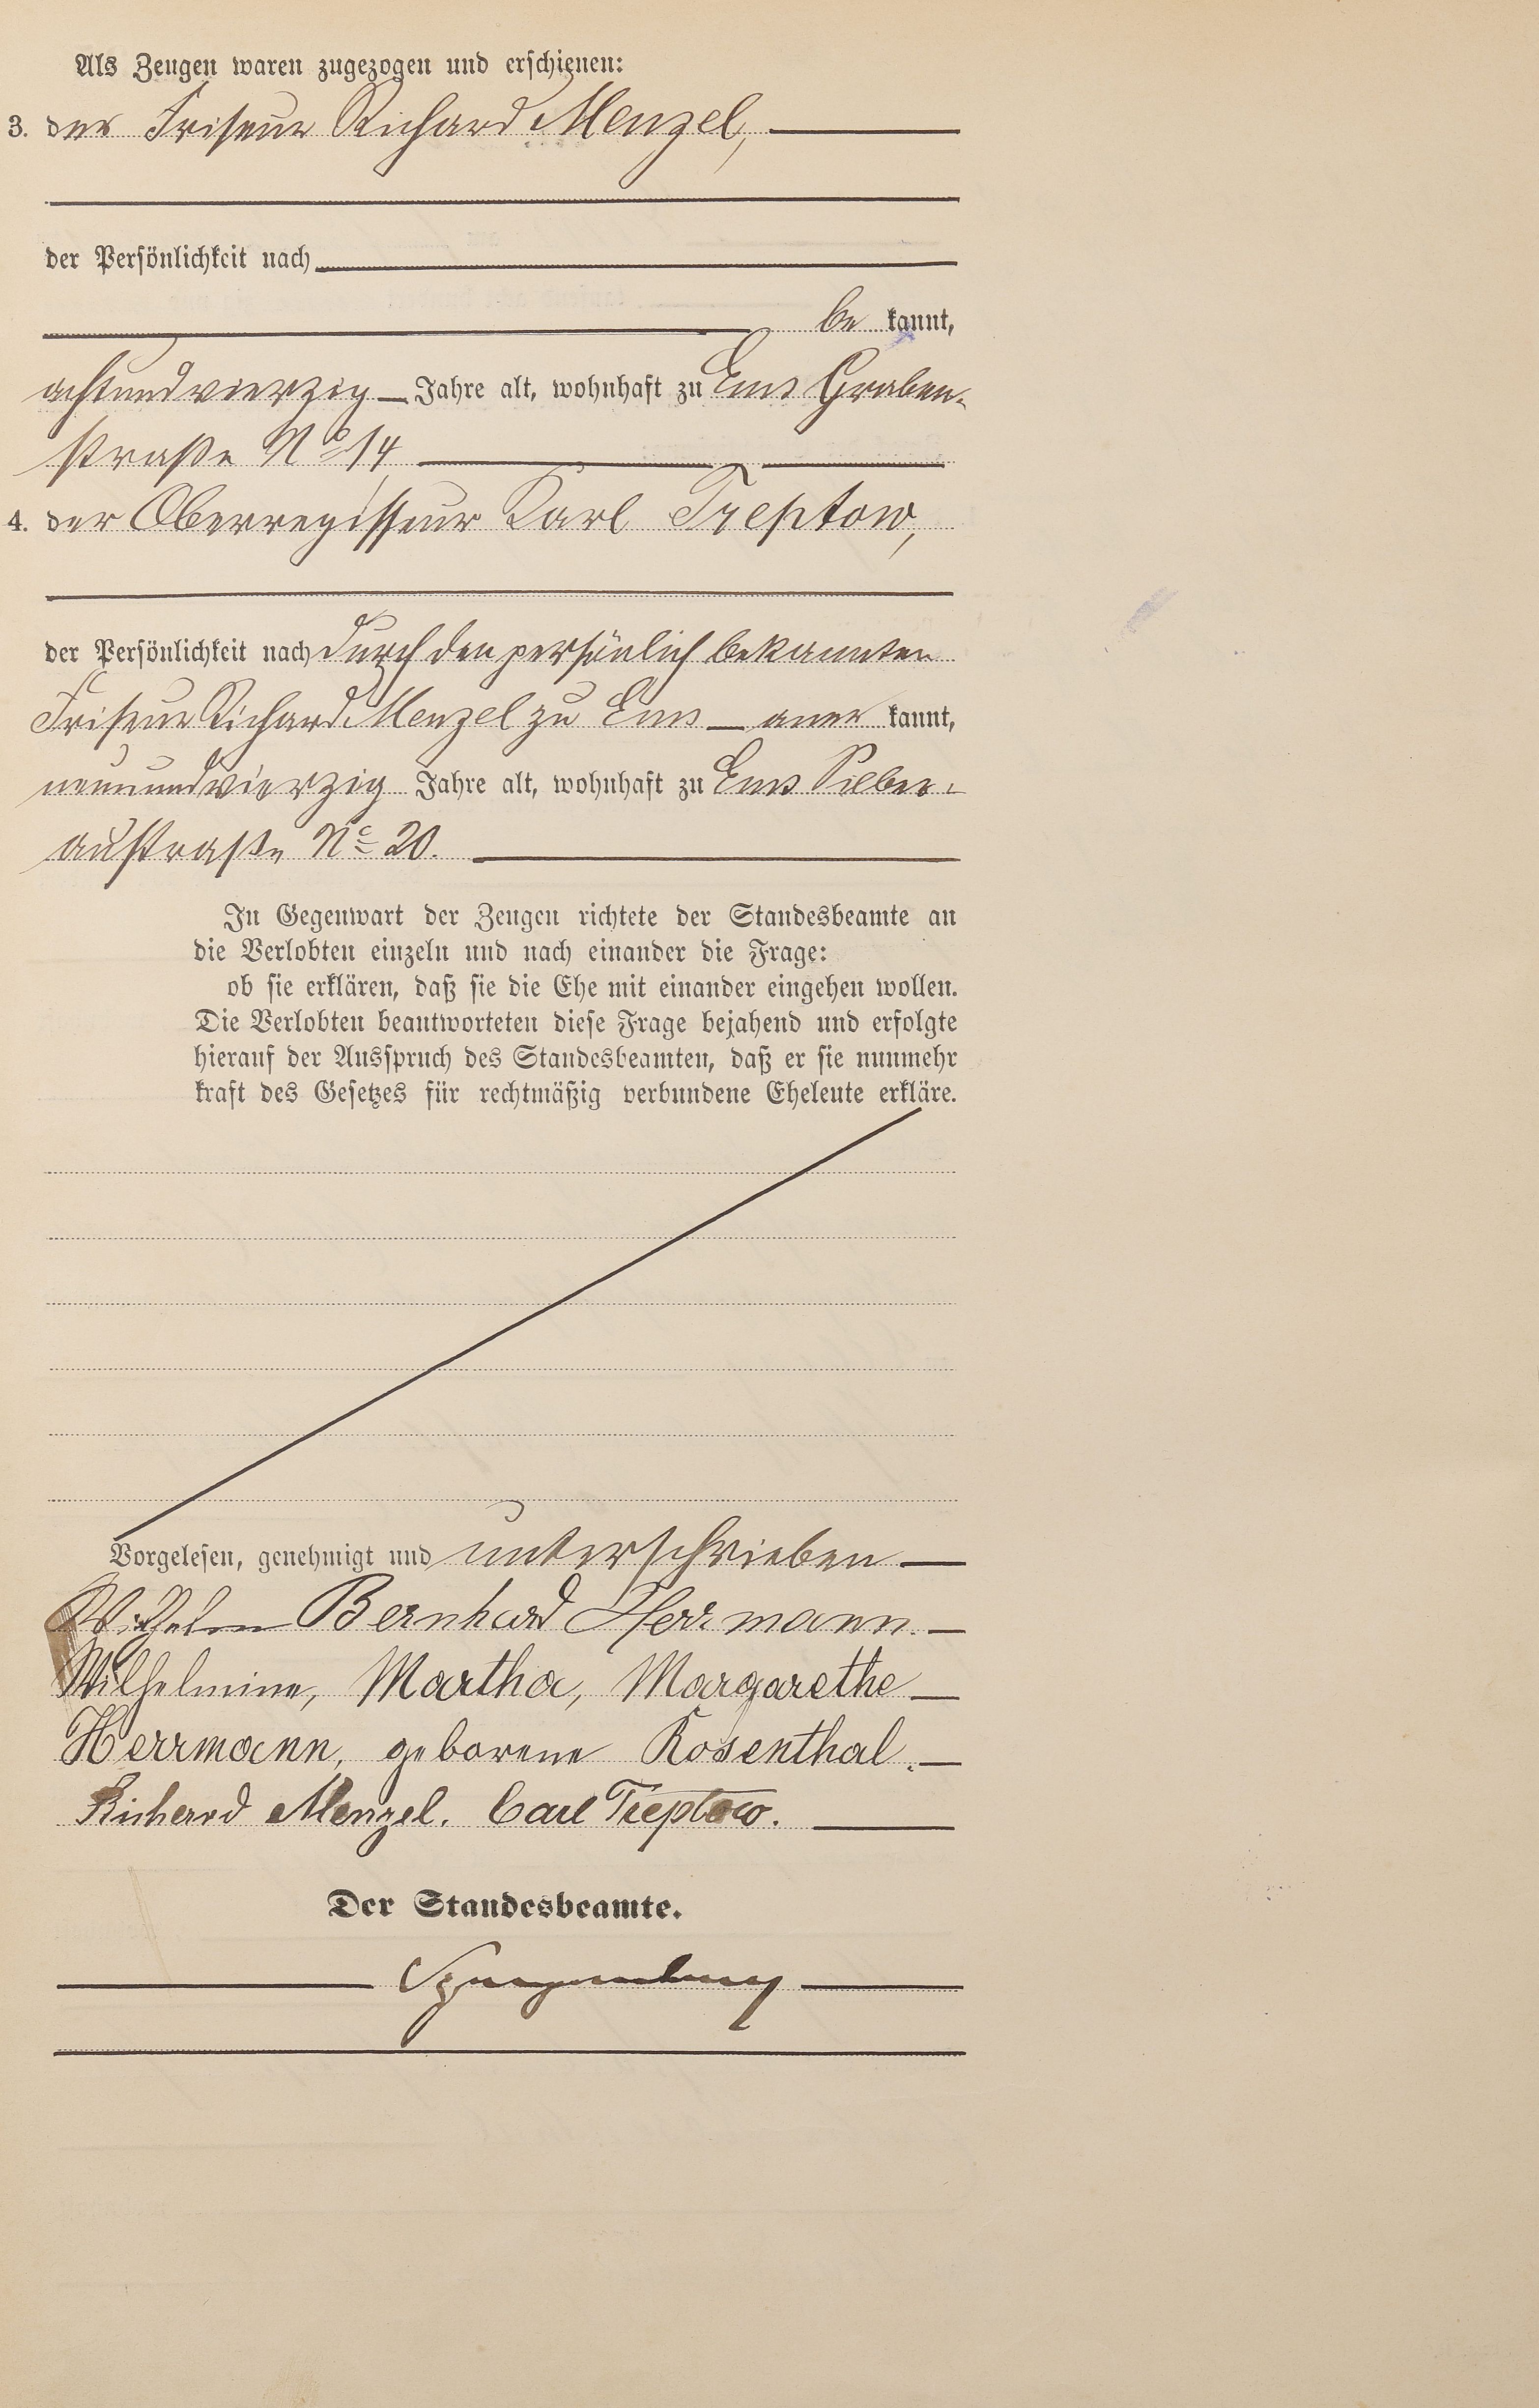 Als Zeugen waren zugezogen und erschienen:
3. der Friseur Richard Menzel,
der Persönlichkeit nach
be kannt,
achtundvierzig Jahre alt, wohnhaft zu Ems Graben-
straße No 14
4. der Oberregisseur Karl Treptow,
der Persönlichkeit nach durch den persönlich bekannten
Friseur Richard Menzel zu Ems aner kannt,
neunundvierzig Jahre alt, wohnhaft zu Ems Silber-
austraße No 20.
In Gegenwart der Zeugen richtete der Standesbeamte an
die Verlobten einzeln und nach einander die Frage:
ob sie erklären, daß sie die Ehe mit einander eingehen wollen.
Die Verlobten beantworteten diese Frage bejahend und erfolgte
hierauf der Ausspruch des Standesbeamten, daß er sie nunmehr
kraft des Gesetzes für rechtmäßig verbundene Eheleute erkläre.
Vorgelesen, genehmigt und unterschrieben
Wilhelm Bernhard Herrmann.
Wilhelmine, Martha, Margarethe
Herrmann, geborene Rosenthal.
Richard Menzel. Carl Treptow.
Der Standesbeamte.
Spangenberg